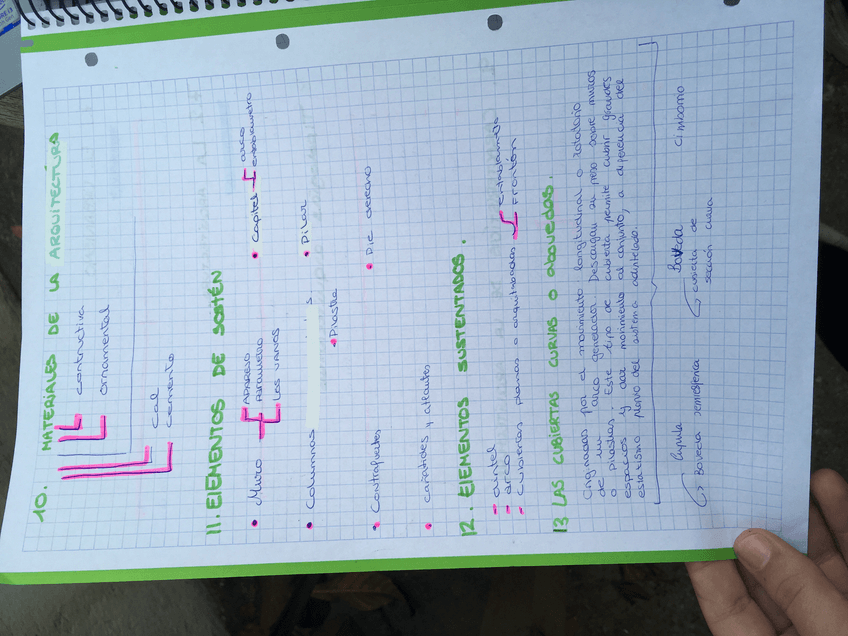 10. MATERIALES DE LA ARQUITECTURA
contructiva
ornamental
cal
cemento
11. ELEMENTOS DE SOSTÉN
• Muro
Aparejo
Paramento
Los vanos
• Capitel
arco
entablamento
• Columnas
• Pilar
• Pilastra
• Contrafuertes
• Pie derecho
• cariátides y atlantes
12. ELEMENTOS SUSTENTADOS.
- dintel
- arco
- Cubiertas planas o arquitrabadas
entablamento
Frontón
13 LAS CUBIERTAS CURVAS O abovedas.
Engendradas por el movimiento longitudinal o rotatorio
de un arco generador. Descargan su peso sobre muros
o pilastras. Este tipo de cubierta permite cubrir grandes
espacios y dar movimiento al conjunto, a diferencia del
estatismo plano del sistema adintelado.
Cúpula
Bóveda semiesférica
Bóveda
cubierta de
sección curva
Cimborrio